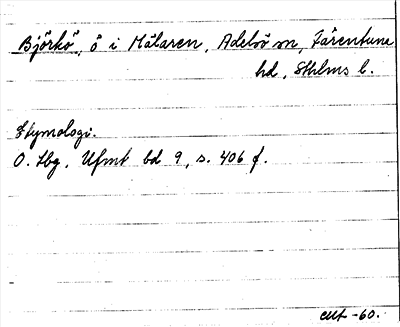 Björkö, ö i Mälaren, Adelsö sn, Färentuna
hd, Sthlms l.
Etymologi.
O. Lbg, Ufmt bd 9, s. 406 f.
-60.